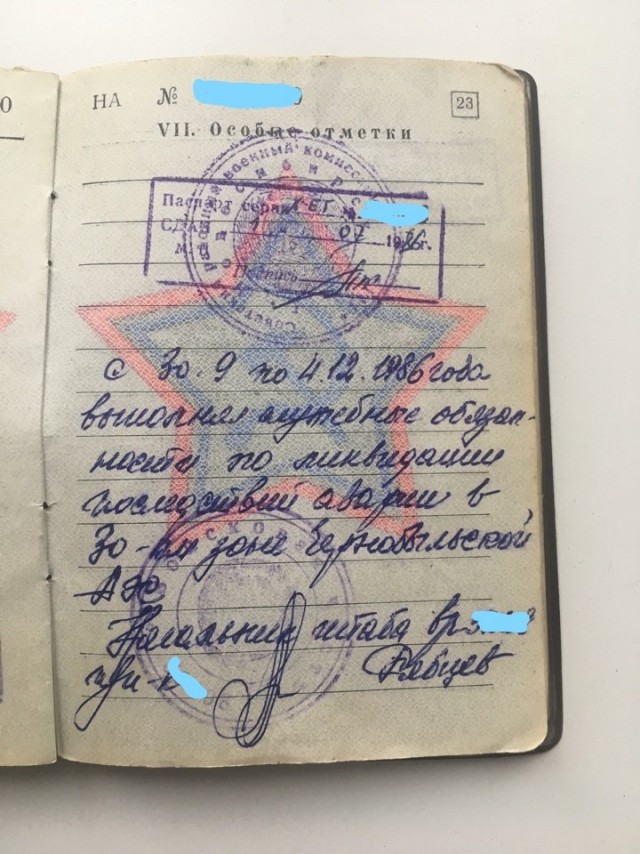 НА №
23
VII. Особые отметки
военный комисс
Паспорт серия
СДАЛ 07 1986 г.
М. П. Подпись
с 30.9 по 4.12.1986 года
выполнял служебные обязан-
ности по ликвидации
последствий аварии в
30-км зоне Чернобыльской
АЭС
Начальник штаба
Рябцев